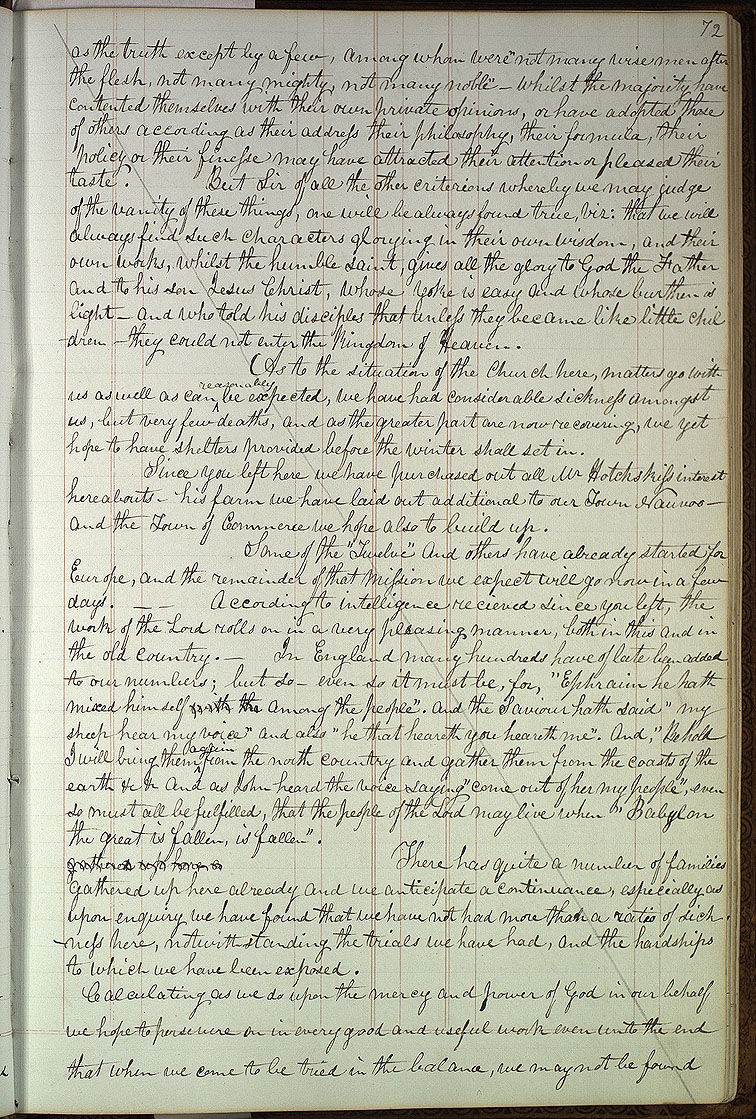 72
as the truth except by a few, among whom were "not many wise men after
the flesh, not many mighty, not many noble" – whilst the majority have
contented themselves with their own private opinions, or have adopted those
of others according as their address their philosophy, their formula, their
policy or their finesse may have attracted their attention or pleased their
taste. But Sir of all the other criterions whereby we may judge
of the vanity of these things, one will be always found true, viz: that we will
always find such characters glorying in their own wisdom, and their
own works, whilst the humble saint, gives all the glory to God the Father
and to his son Jesus Christ, whose yoke is easy and whose burthen is
light – and who told his disciples that unless they became like little chil
-dren – they could not enter the Kingdom of Heaven.
(As to the situation of the Church here, matters go with
reasonably
us as well as can ^ be expected, we have had considerable sickness amongst
us, but very few deaths, and as the greater part are now recovering, we yet
hope to have shelters provided before the winter shall set in.
Since you left here we have purchased out all Mr Hotchskiss interest
hereabouts – his farm we have laid out additional to our Town Nauvoo –
and the Town of Commerce we hope also to build up.
Some of the "Twelve" and others have already started for
Europe, and the remainder of that mission we expect will go now in a few
days. – – According to intelligence recieved since you left, the
work of the Lord rolls on in a very pleasing manner, both in this and in
the old country. – In England many hundreds have of late been added
to our numbers; but so – even so it must be, for, "Ephraim he hath
mixed himself with the among the people". And the Saviour hath said "my
sheep hear my voice" and also "he that heareth you heareth me". And, "Behold
again
I will bring them ^ from the north country and gather them from the coasts of the
earth &c &c And as John heard the voice saying "come out of her my people", even
so must all be fulfilled, that the people of the Lord may live when "Babylon
the great is fallen, is fallen".
gathered up here There has quite a number of families
Gathered up here already and we anticipate a continuance, especially as
upon enquiry we have found that we have not had more than a ratio of sick-
-ness here, notwithstanding the trials we have had, and the hardships
to which we have been exposed.
Calculating as we do upon the mercy and power of God in our behalf
we hope to persevere on in every good and useful work even unto the end
that when we come to be tried in the balance, we may not be found